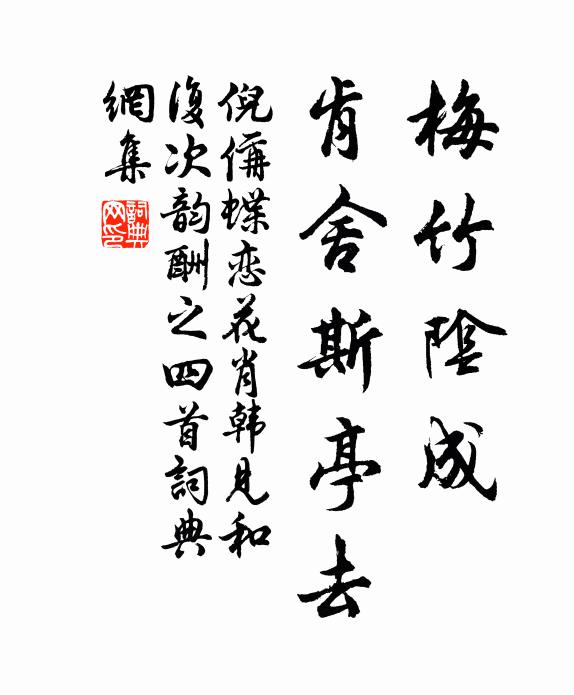 梅竹陰成
肯舍斯亭去
倪偁蝶恋花肖韩見和
復次韵酬之四首詞典
網集
詞典
网印